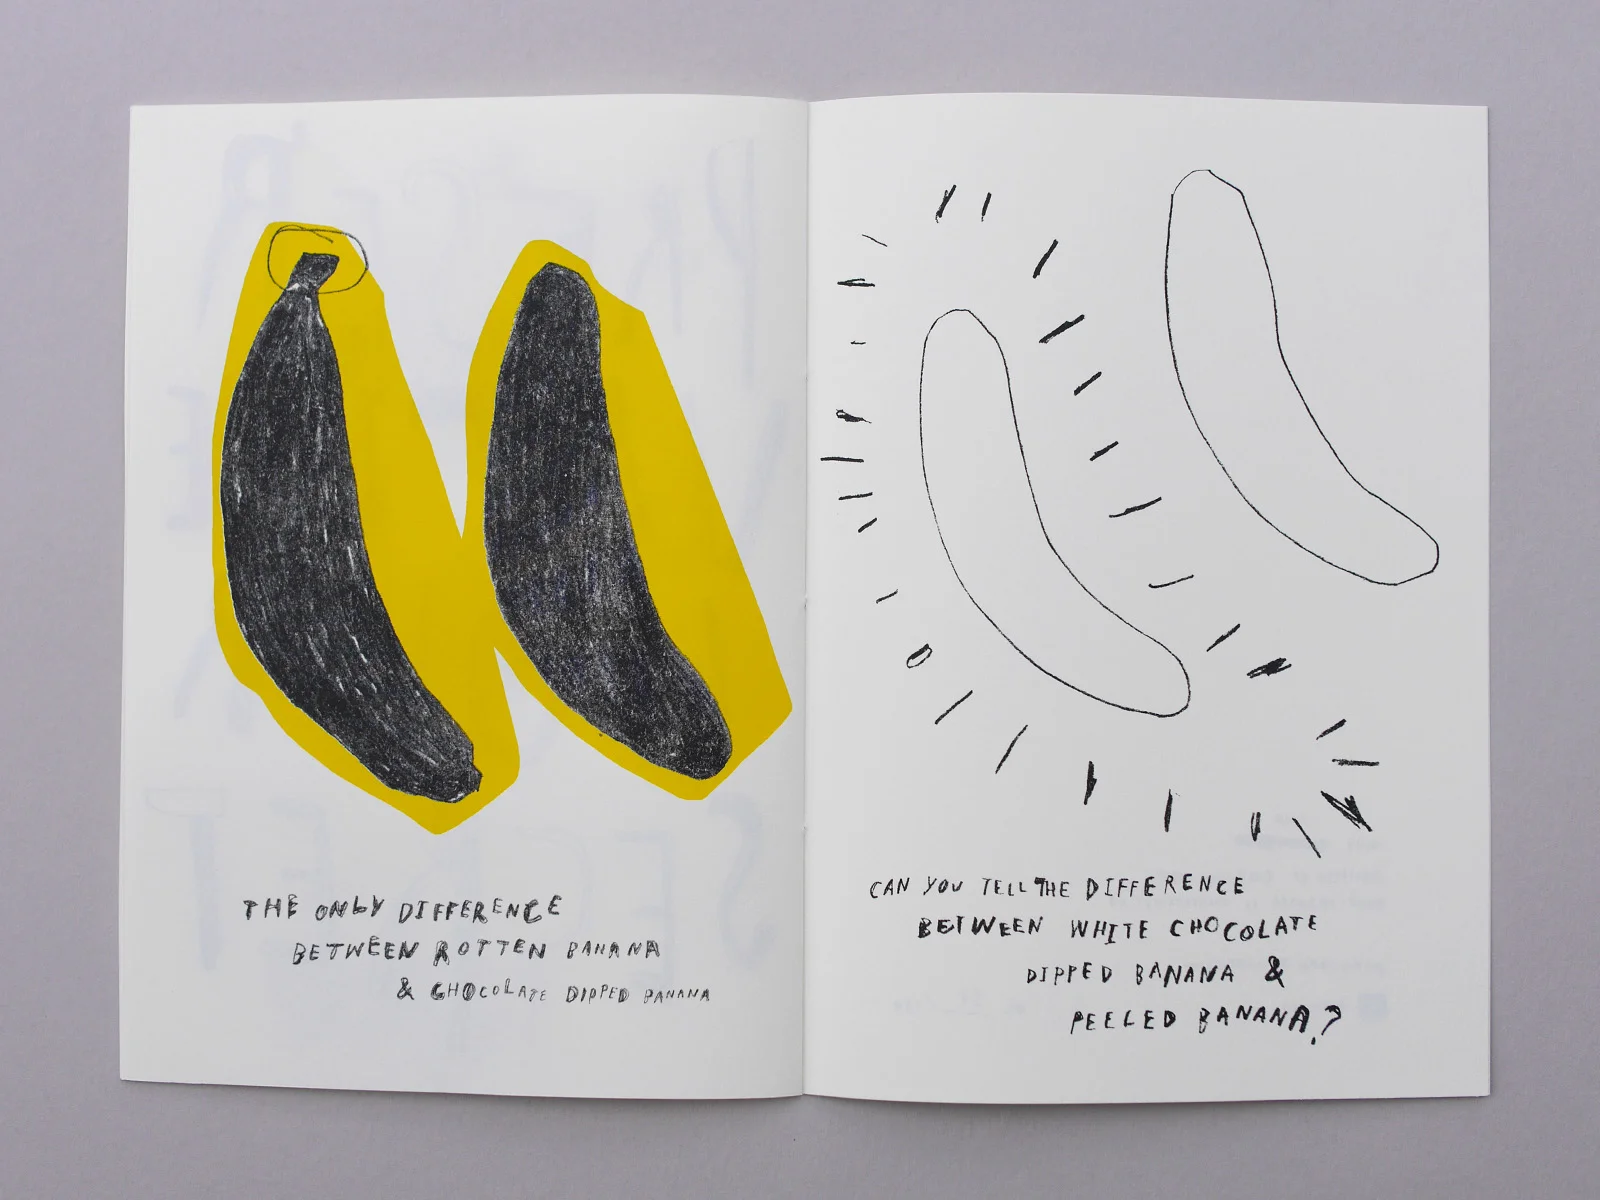 THE ONLY DIFFERENCE
BETWEEN ROTTEN BANANA
& CHOCOLATE DIPPED BANANA
CAN YOU TELL THE DIFFERENCE
BETWEEN WHITE CHOCOLATE
DIPPED BANANA &
PEELED BANANA?